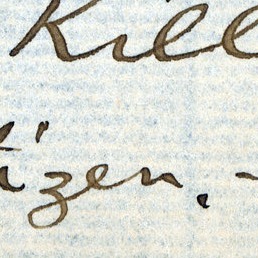 Kill
tizen. -